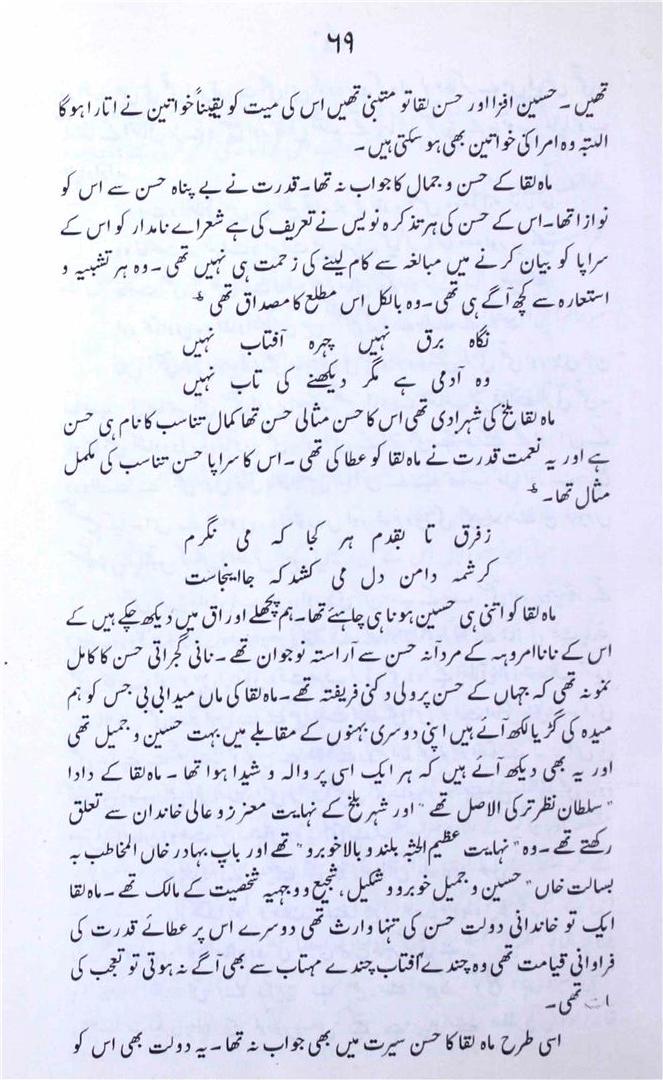 ۶۹
تھیں۔ حسین افزا اور حسن لقا تو متبنیٰ تھیں اس کی میت کو یقیناً خواتین نے اتارا ہوگا
البتہ وہ امرا کی خواتین بھی ہو سکتی ہیں۔
ماہ لقا کے حسن و جمال کا جواب نہ تھا۔ قدرت نے بے پناہ حسن سے اس کو
نوازا تھا۔ اس کے حسن کی ہر تذکرہ نویس نے تعریف کی ہے شعراے نامدار کو اس کے
سراپا کو بیان کرنے میں مبالغہ سے کام لینے کی زحمت ہی نہیں تھی۔ وہ ہر تشبیہ و
استعارہ سے کچھ آگے ہی تھی۔ وہ بالکل اس مطلع کا مصداق تھی ؎
نگاہ برق نہیں چہرہ آفتاب نہیں
وہ آدمی ہے مگر دیکھنے کی تاب نہیں
ماہ لقا بلخ کی شہزادی تھی اس کا حسن مثالی حسن تھا کمال تناسب کا نام ہی حسن
ہے اور یہ نعمت قدرت نے ماہ لقا کو عطا کی تھی۔ اس کا سراپا حسن تناسب کی مکمل
مثال تھا۔ ؎
زفرق تا بقدم ہر کجا کہ می نگرم
کرشمہ دامن دل می کشد کہ جا اینجاست
ماہ لقا کو اتنی ہی حسین ہونا ہی چاہئے تھا۔ ہم پچھلے اوراق میں دیکھ چکے ہیں کے
اس کے نانا امروہہ کے مردانہ حسن سے آراستہ نوجوان تھے۔ نانی گجراتی حسن کا کامل
نمونہ تھی کہ جہاں کے حسن پر ولی دکنی فریفتہ تھے۔ ماہ لقا کی ماں میدا بی بی جس کو ہم
میدہ کی گڑیا لکھ آئے ہیں اپنی دوسری بہنوں کے مقابلے میں بہت حسین و جمیل تھی
اور یہ بھی دیکھ آئے ہیں کہ ہر ایک اسی پر والہ و شیدا ہوا تھا۔ ماہ لقا کے دادا
"سلطان نظر ترکی الاصل تھے" اور شہر بلخ کے نہایت معزز و عالی خاندان سے تعلق
رکھتے تھے۔ وہ "نہایت عظیم الجثہ بلند و بالا خوبرو" تھے اور باپ بہادر خاں المخاطب بہ
بسالت خاں "حسین و جمیل خوبرو و شکیل، شجیع و وجہیہ شخصیت کے مالک تھے۔ ماہ لقا
ایک تو خاندانی دولت حسن کی تنہا وارث تھی دوسرے اس پر عطائے قدرت کی
فراوانی قیامت تھی وہ چندے آفتاب چندے مہتاب سے بھی آگے نہ ہوتی تو تعجب کی
بات تھی۔
اسی طرح ماہ لقا کا حسن سیرت میں بھی جواب نہ تھا۔ یہ دولت بھی اس کو